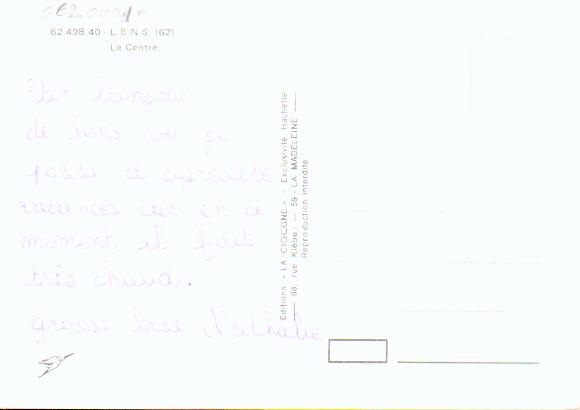 062.0001r
62.498.40 - LENS (62)
Le Centre.
Un bonjour
de Lens ou je
passe d'agréable
vacances car en ce
moment il fait
très chaud.
grosse bise Nathalie
Editions "LA CIGOGNE" - Exclusivité Hachette
98, rue Kléber - 59 - LA MADELEINE
Reproduction interdite